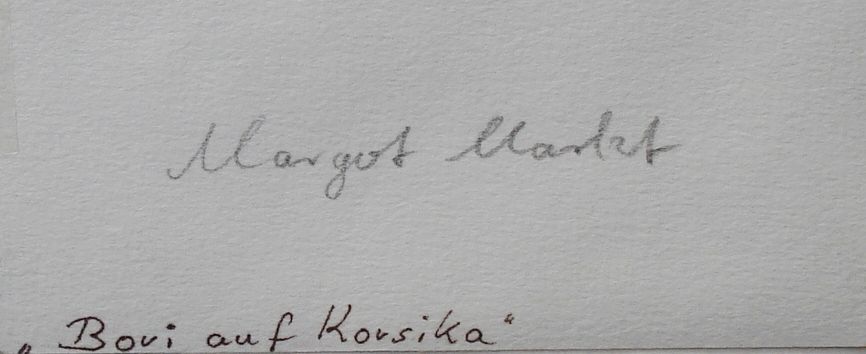 Margot Markt
„Bori auf Korsika“